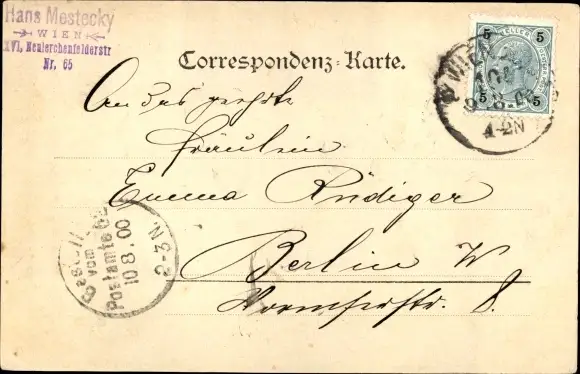 Hans Mestecky
WIEN
XVI, Neulerchenfelderstr
Nr. 65
Correspondenz-Karte.
5 5
5 5
WIEN
9.8.00
1-2N
An das geehrte
Fräulein
Emma Rüdiger
Berlin W
Wormserstr. 8.
Bestellt
vom
Postamte 62
10 8.00
2-3 N.